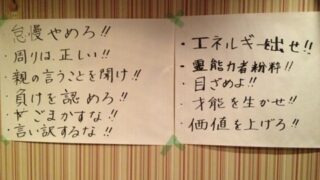 怠慢やめろ!!
・周りは、正しい!!
・親の言うことを聞け!!
・負けを認めろ!!
・ごまかすな!!
・言い訳するな!!
・エネルギー出せ!!
・霊能力者粉料!!
・目ざめよ!!
・才能を生かせ!!
・価値を上げろ!!